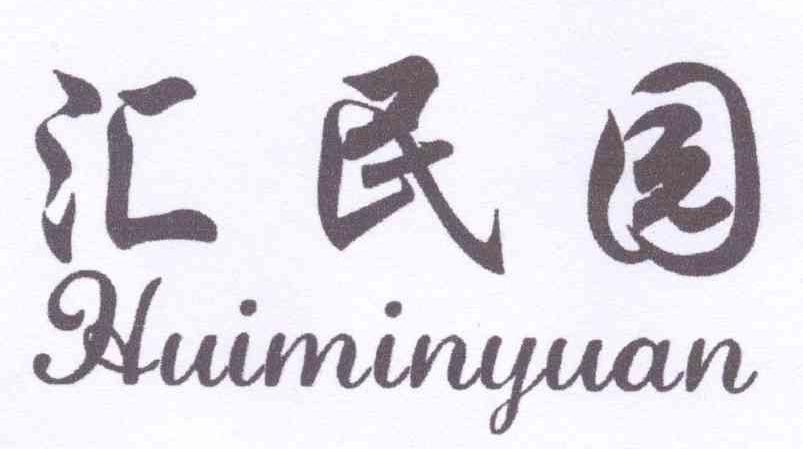 汇民园
Huiminyuan